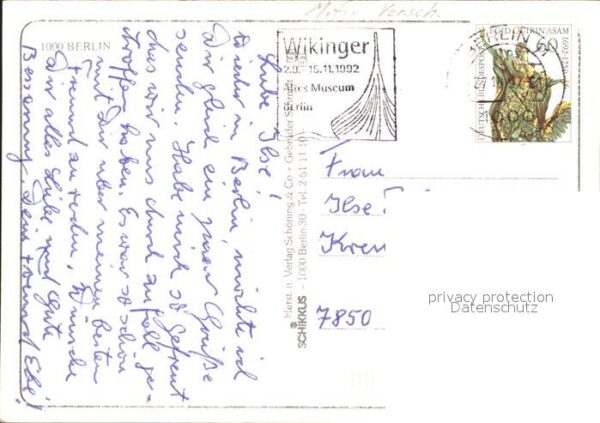 Motiv Versch.
1000 BERLIN
Liebe Ilse!
Wieder in Berlin, möchte ich
Dir gleich ein paar Grüße
senden. Habe mich so gefreut
das wir uns durch Zufall ge-
troffen haben. Es war so schön
mit Dir über meinen besten
Freund zu reden. Wünsche
Dir alles Liebe und gute
Besserung Dein Freund
Herst. u. Verlag Schöning & Co + Gebrüder Schmidt
SCHIKKUS – 1000 Berlin 30 · Tel. 2 61 11 10
Wikinger
2.9. – 15.11.1992
Altes Museum
Berlin
BERLIN
1000
COSMAS DAMIAN ASAM
60
DEUTSCHE BUNDESPOST
Frau
Ilse
7850
privacy protection
Datenschutz